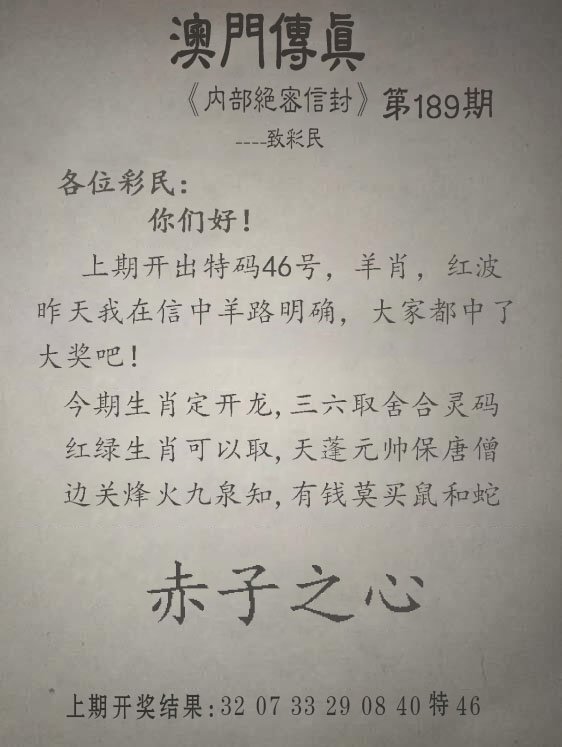 澳門傳眞
《内部絕密信封》第189期
----致彩民
各位彩民：
你们好！
上期开出特码46号，羊肖，红波
昨天我在信中羊路明确，大家都中了
大奖吧！
今期生肖定开龙,三六取舍合灵码
红绿生肖可以取,天蓬元帅保唐僧
边关烽火九泉知,有钱莫买鼠和蛇
赤子之心
上期开奖结果:32 07 33 29 08 40 特46